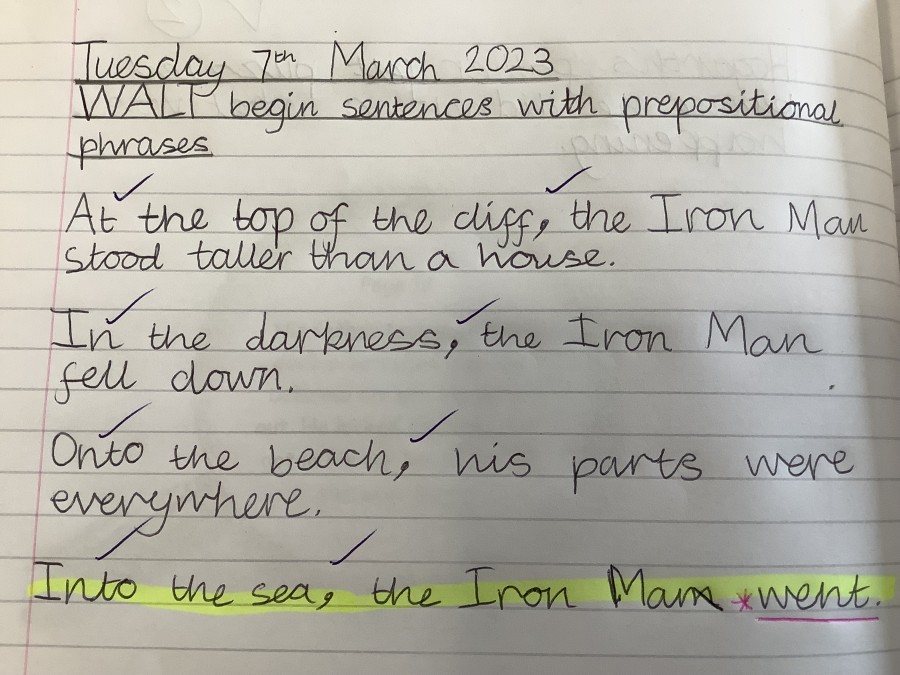 Tuesday 7th March 2023
WALT begin sentences with prepositional
phrases
At the top of the cliff, the Iron Man
stood taller than a house.
In the darkness, the Iron Man
fell down.
Onto the beach, his parts were
everywhere.
Into the sea, the Iron Man *went.